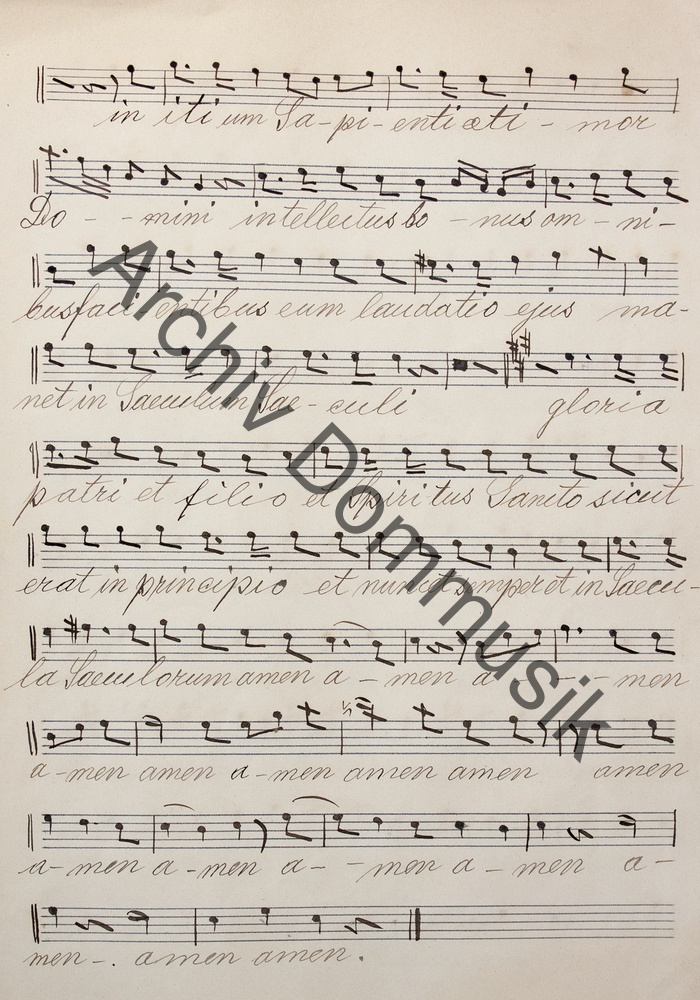 in iti um Sa-pi-entiæ ti - mor
Do - - mini intellectus bo - nus om - ni-
bus faci entibus eum laudatio ejus ma-
net in Saeculum Sae - culi gloria
patri et filio et Spiritus Sancto sicut
erat in principio et nunc et semper et in Saecu-
la Saeculorum amen a - men a - - - men
a - men amen a - men amen amen amen
a - men a - men a - - men a - men a -
men -. amen amen.
Archiv Dommusik